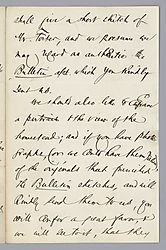 shall give a short sketch of
Mr. Foster, and we presume we
may regard as authentic the
Bulletin apt. which you kindly
sent us.
We should also like to
a portrait & the view of the
homestead; and if you have photo
graphs, (or we could have them)
of the originals that furnished
the Bulletin sketches, and will
kindly lend them to us, you
will confer a great favor, &
we will see to it, that they